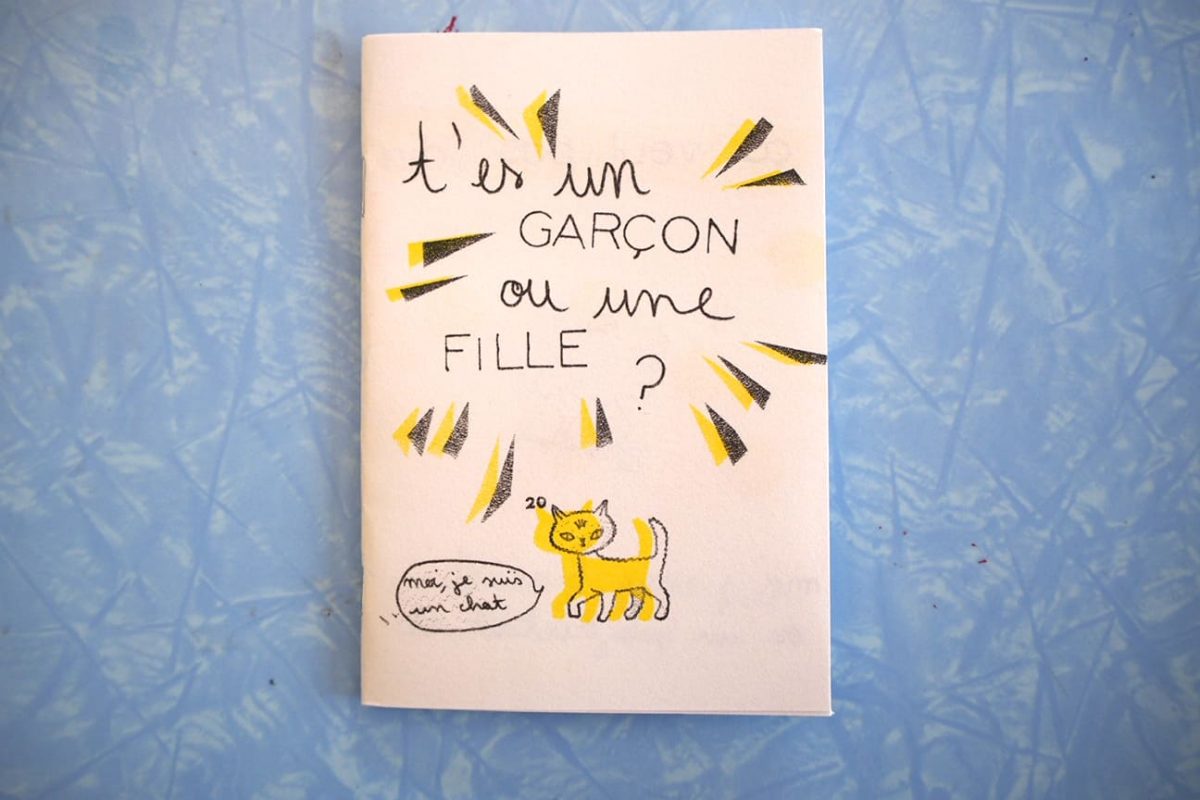 t'es un
GARÇON
ou une
FILLE
?
20
moi, je suis
un chat